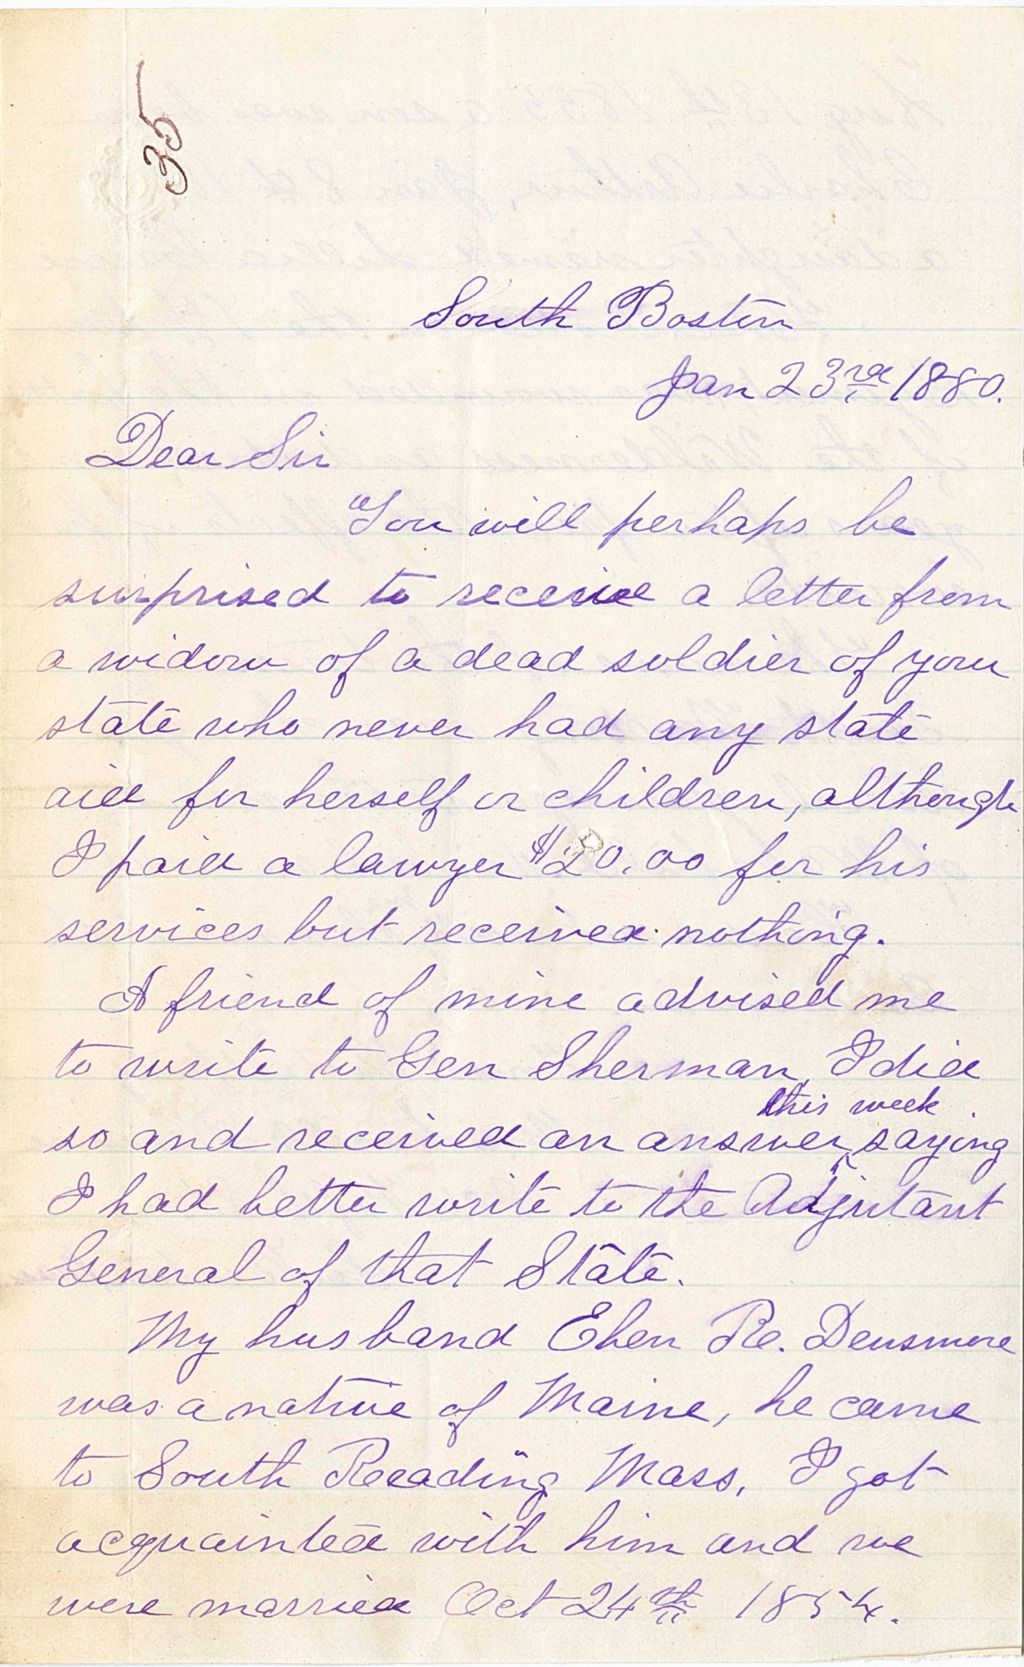 35
South Boston
Jan 23rd 1880.
Dear Sir
You will perhaps be
surprised to receive a letter from
a widow of a dead soldier of your
state who never had any state
aid for herself or children, although
I paid a lawyer $20.00 for his
services but received nothing.
A friend of mine advised me
to write to Gen Sherman, I did
this week
so and received an answer saying
I had better write to the Adjutant
General of that State.
My husband Eben Densmore
was a native of Maine, he came
to South Reading Mass, I got
acquainted with him and we
were married Oct 24th 1854.